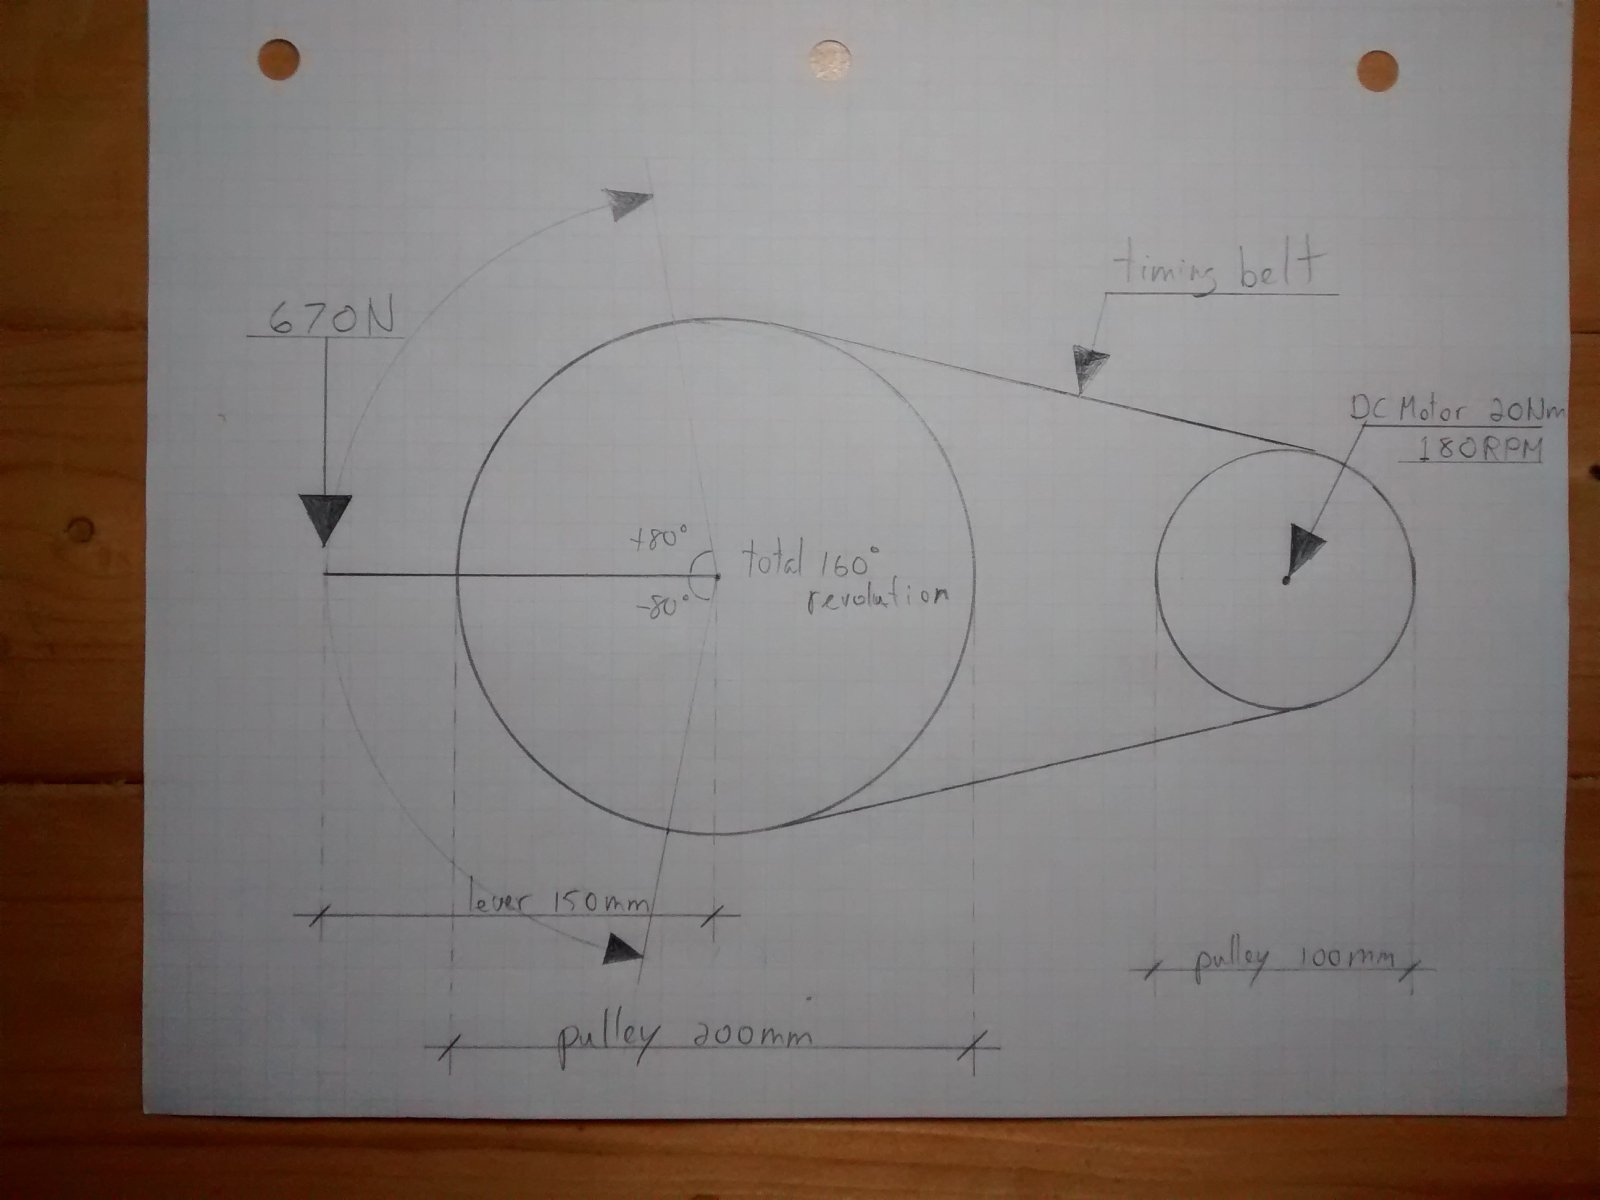 670N
timing belt
DC Motor 20Nm
180RPM
+80°
-80°
total 160°
revolution
lever 150mm
pulley 100mm
pulley 200mm